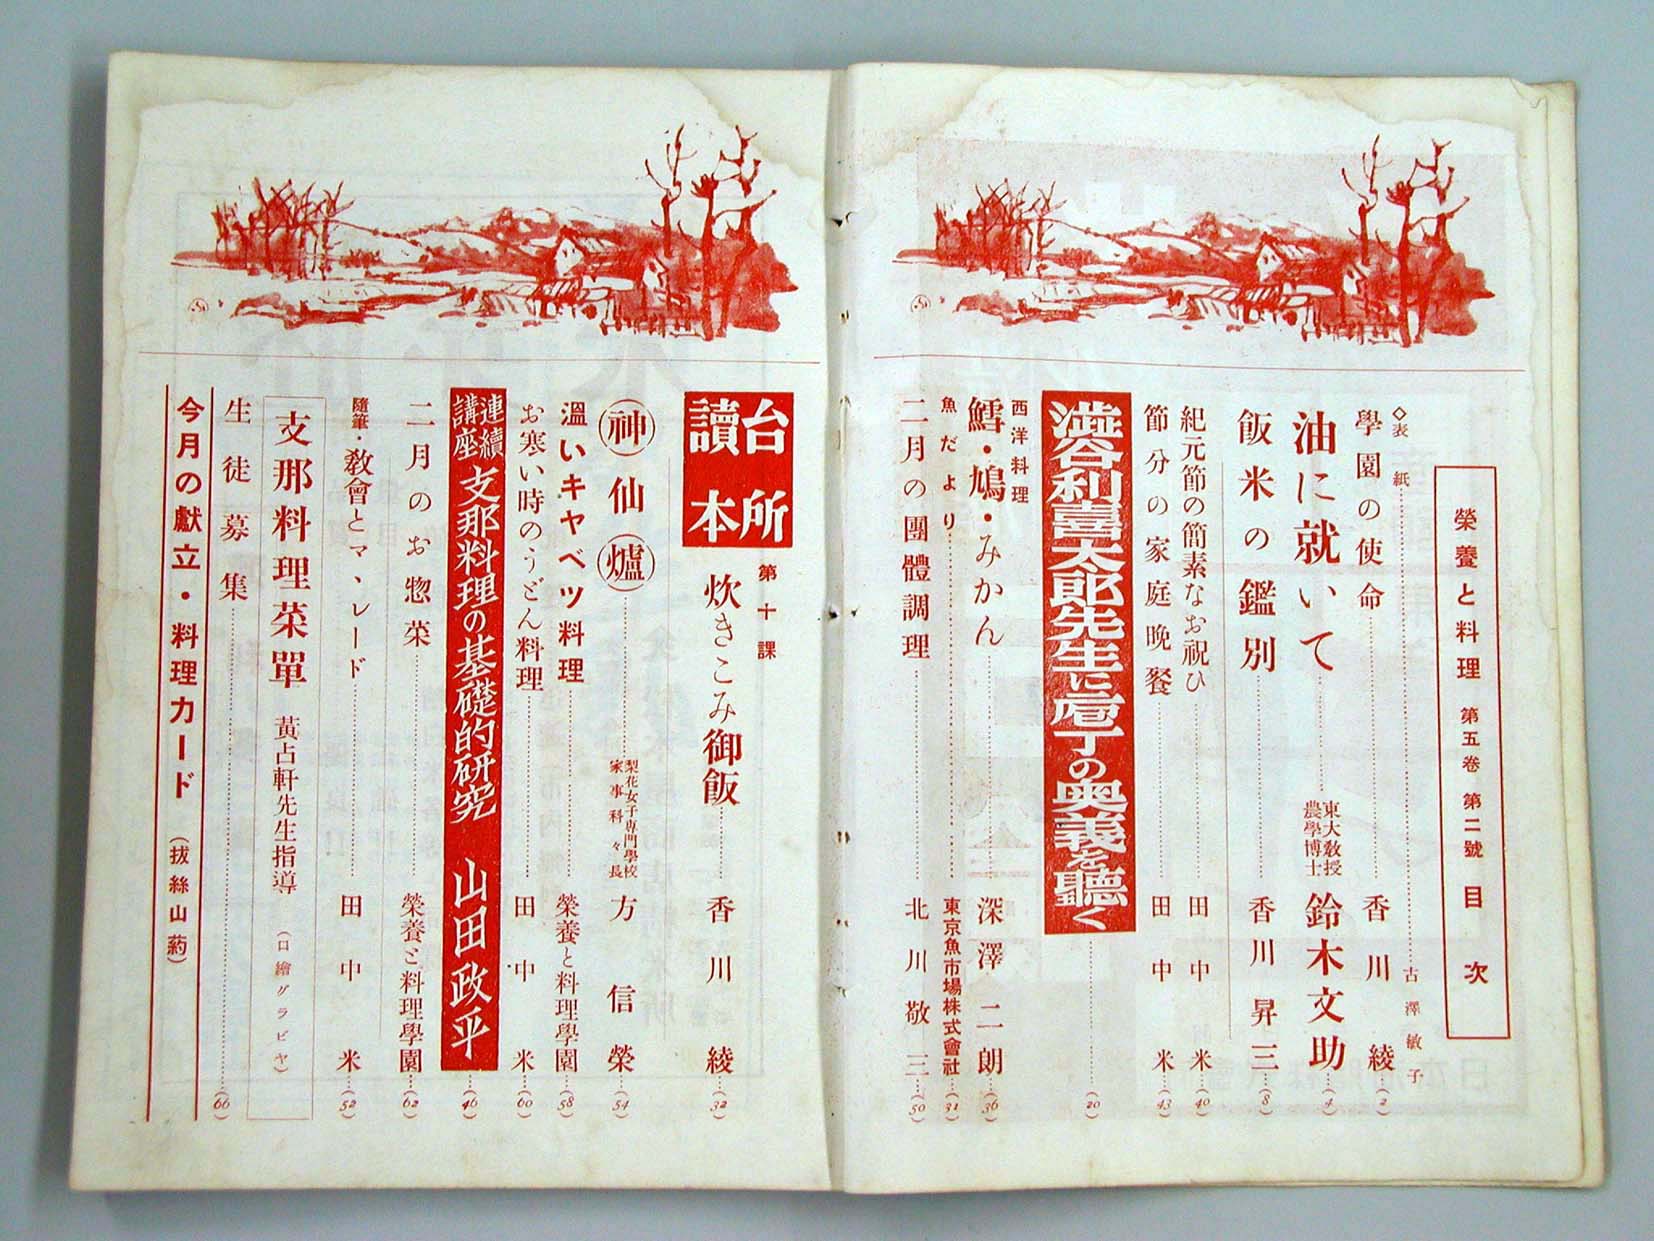 榮養と料理 第五卷 第二號 目次
◇表紙……古澤敏子
學園の使命……香川綾…(2)
油に就いて……東大教授 農學博士 鈴木文助…(4)
飯米の鑑別……香川昇三…(8)
紀元節の簡素なお祝ひ……田中米…(40)
節分の家庭晩餐……田中米…(43)
澁谷利喜太郎先生に庖丁の奥義を聽く……(20)
西洋料理
鱈・鳩・みかん……深澤二朗…(36)
魚だより……東京魚市場株式會社…(31)
二月の團體調理……北川敬三…(50)
台所讀本
第十課
炊きこみ御飯……香川綾…(32)
神仙爐……梨花女子専門學校 家事科々長 方信榮…(54)
溫いキャベツ料理……榮養と料理學園…(58)
お寒い時のうどん料理……田中米…(60)
連續講座 支那料理の基礎的研究 山田政平…(46)
二月のお惣菜……榮養と料理學園…(62)
隨筆・教會とマ、レード……田中米…(52)
支那料理菜單 黃占軒先生指導 (口繪グラビヤ)
生徒募集……(66)
今月の獻立・料理カード (拔絲山葯)